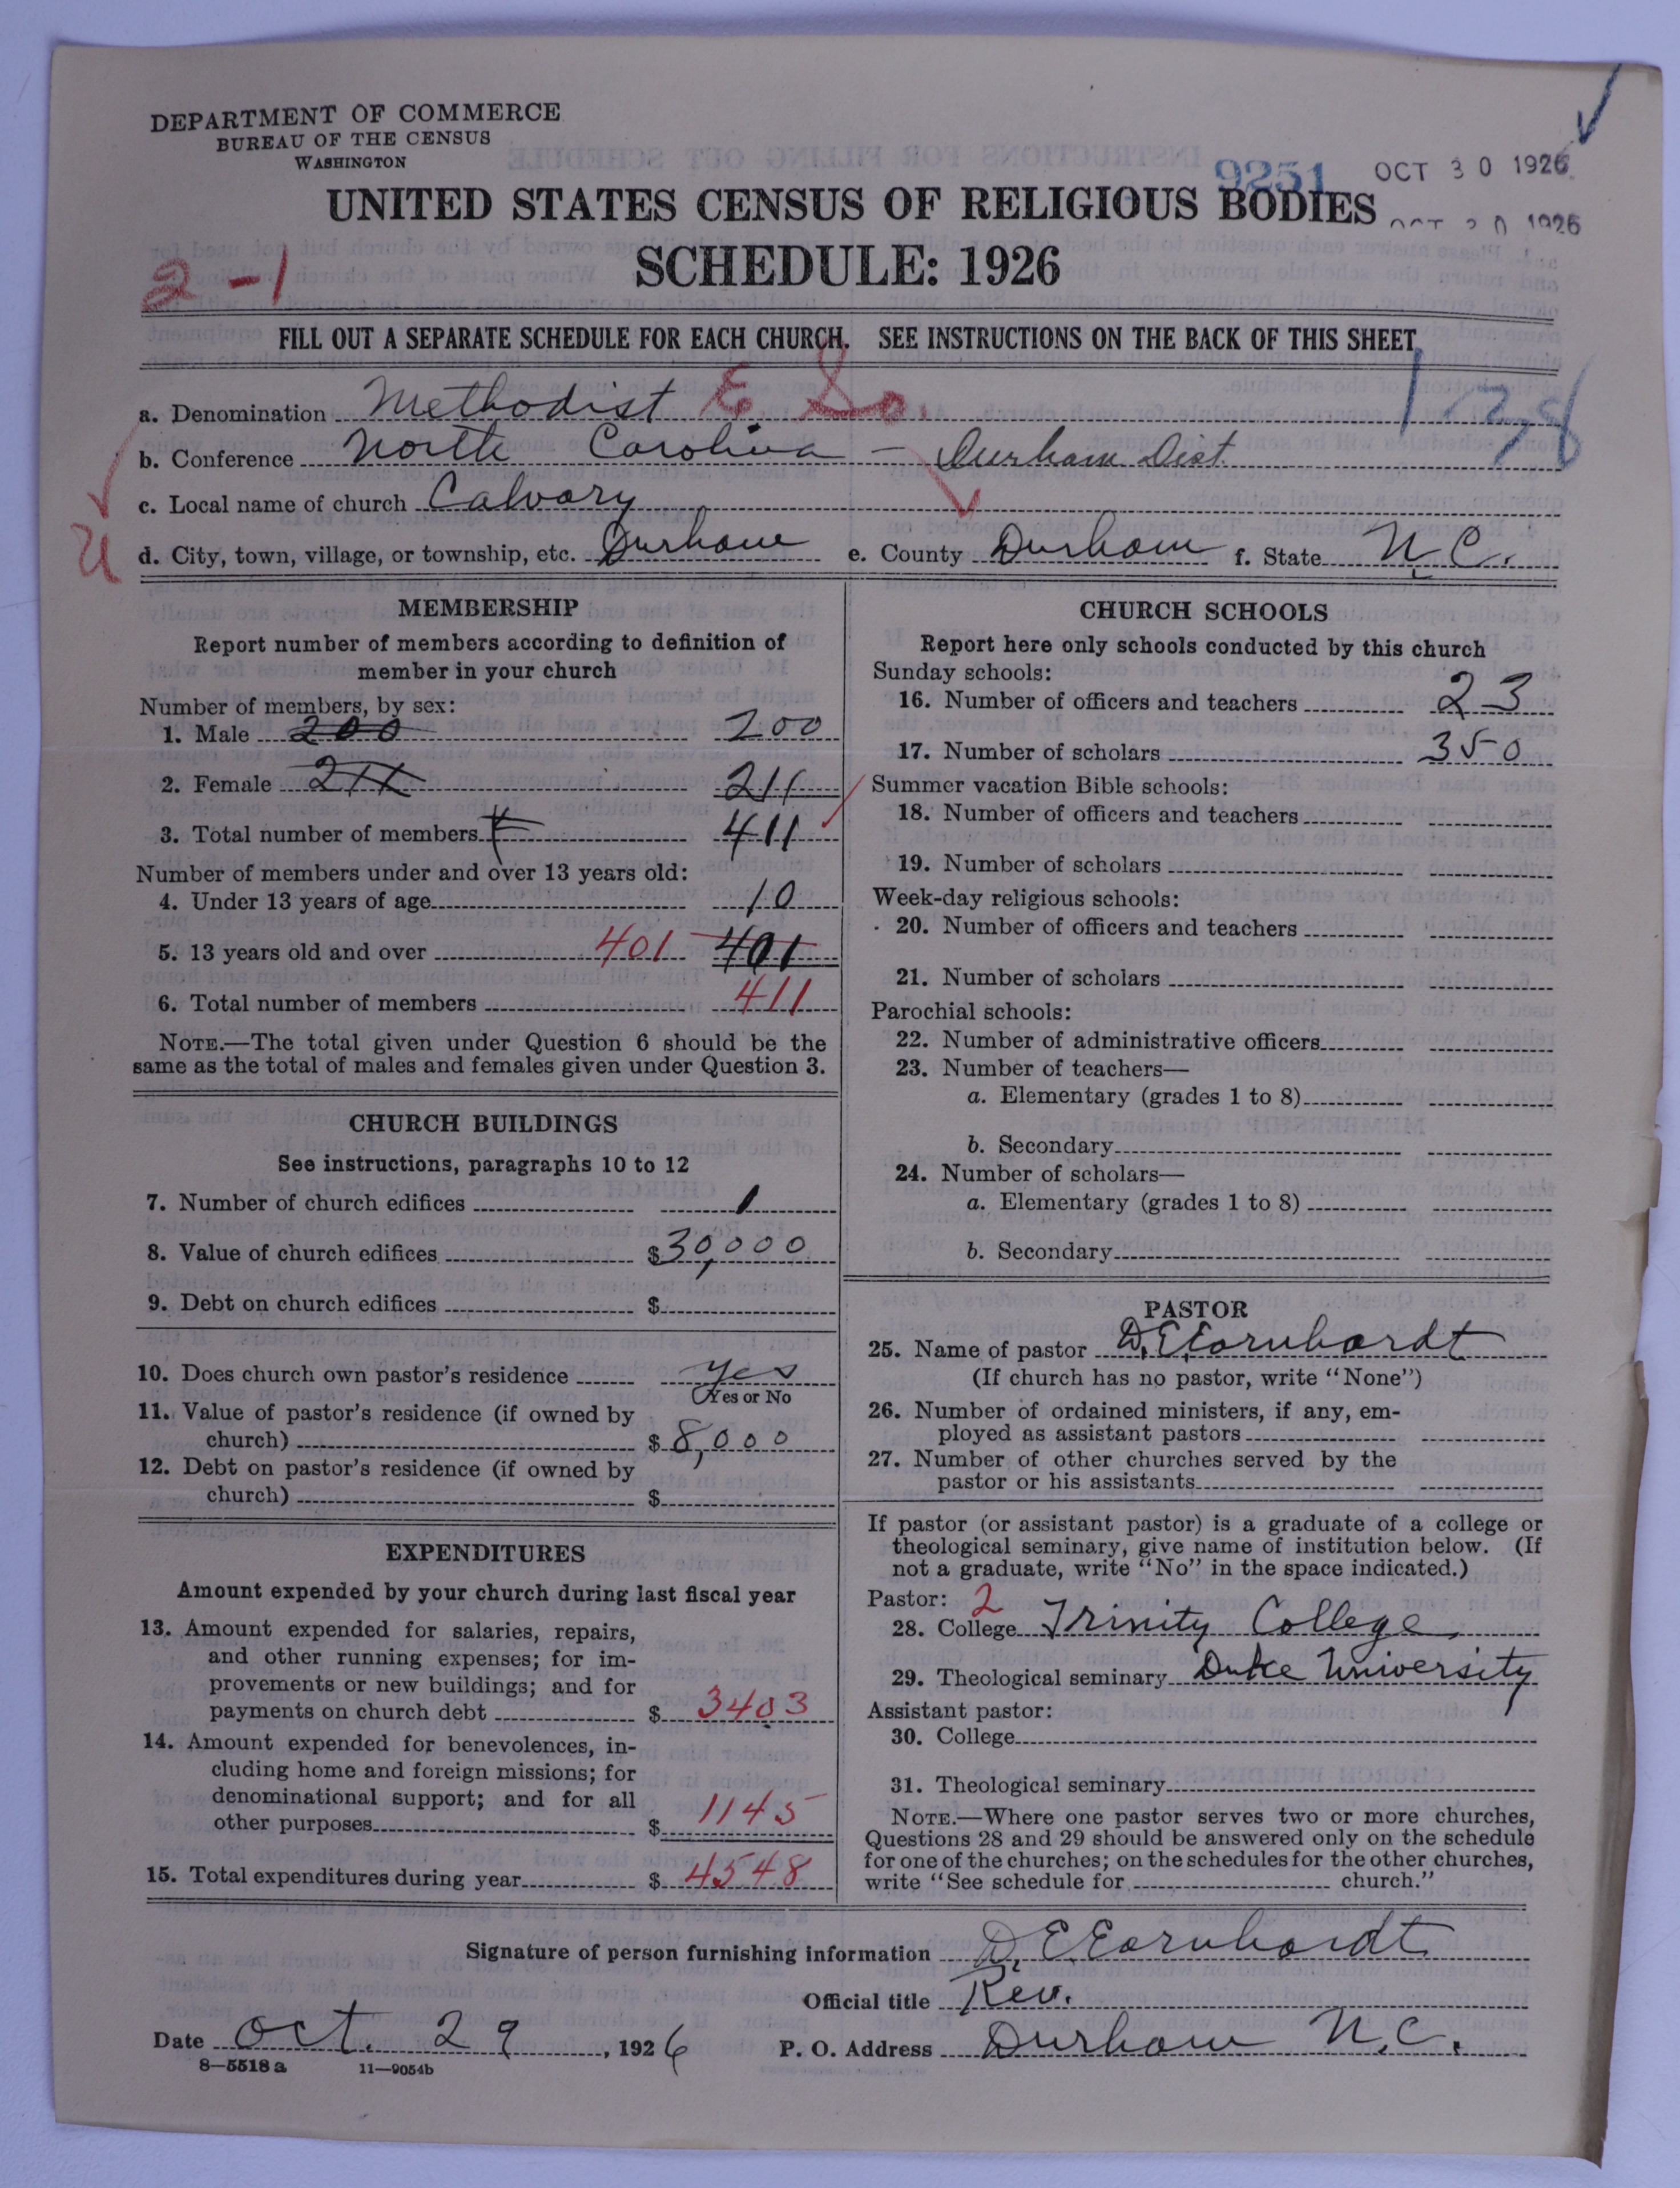 DEPARTMENT OF COMMERCE
BUREAU OF THE CENSUS
WASHINGTON
9251 OCT 30 1926
UNITED STATES CENSUS OF RELIGIOUS BODIES
OCT 30 1926
SCHEDULE: 1926
2-1
FILL OUT A SEPARATE SCHEDULE FOR EACH CHURCH. SEE INSTRUCTIONS ON THE BACK OF THIS SHEET
a. Denomination Methodist E So.
b. Conference North Carolina - Durham Dist.
c. Local name of church Calvary
d. City, town, village, or township, etc. Durham e. County Durham f. State N.C.
MEMBERSHIP
Report number of members according to definition of
member in your church
Number of members, by sex:
1. Male 200 200
2. Female 211 211
3. Total number of members 411
Number of members under and over 13 years old:
4. Under 13 years of age 10
5. 13 years old and over 401 401
6. Total number of members 411
NOTE.—The total given under Question 6 should be the
same as the total of males and females given under Question 3.
CHURCH BUILDINGS
See instructions, paragraphs 10 to 12
7. Number of church edifices 1
8. Value of church edifices $30,000
9. Debt on church edifices $
10. Does church own pastor's residence yes
(Yes or No
11. Value of pastor's residence (if owned by
church) $8,000
12. Debt on pastor's residence (if owned by
church) $
EXPENDITURES
Amount expended by your church during last fiscal year
13. Amount expended for salaries, repairs,
and other running expenses; for im-
provements or new buildings; and for
payments on church debt $ 3403
14. Amount expended for benevolences, in-
cluding home and foreign missions; for
denominational support; and for all
other purposes $ 1145
15. Total expenditures during year $ 4548
CHURCH SCHOOLS
Report here only schools conducted by this church
Sunday schools:
16. Number of officers and teachers 23
17. Number of scholars 350
Summer vacation Bible schools:
18. Number of officers and teachers
19. Number of scholars
Week-day religious schools:
20. Number of officers and teachers
21. Number of scholars
Parochial schools:
22. Number of administrative officers
23. Number of teachers—
a. Elementary (grades 1 to 8)
b. Secondary
24. Number of scholars—
a. Elementary (grades 1 to 8)
b. Secondary
PASTOR
25. Name of pastor D.E.Earnhardt
(If church has no pastor, write "None")
26. Number of ordained ministers, if any, em-
ployed as assistant pastors
27. Number of other churches served by the
pastor or his assistants
If pastor (or assistant pastor) is a graduate of a college or
theological seminary, give name of institution below. (If
not a graduate, write "No" in the space indicated.)
Pastor: 2
28. College Trinity College
29. Theological seminary Duke University
Assistant pastor:
30. College
31. Theological seminary
NOTE.—Where one pastor serves two or more churches,
Questions 28 and 29 should be answered only on the schedule
for one of the churches; on the schedules for the other churches,
write "See schedule for church."
Signature of person furnishing information D.E.Earnhardt
Official title Rev.
Date Oct. 29, 1926 P. O. Address Durham N.C.
8—5518 a 11—9054b